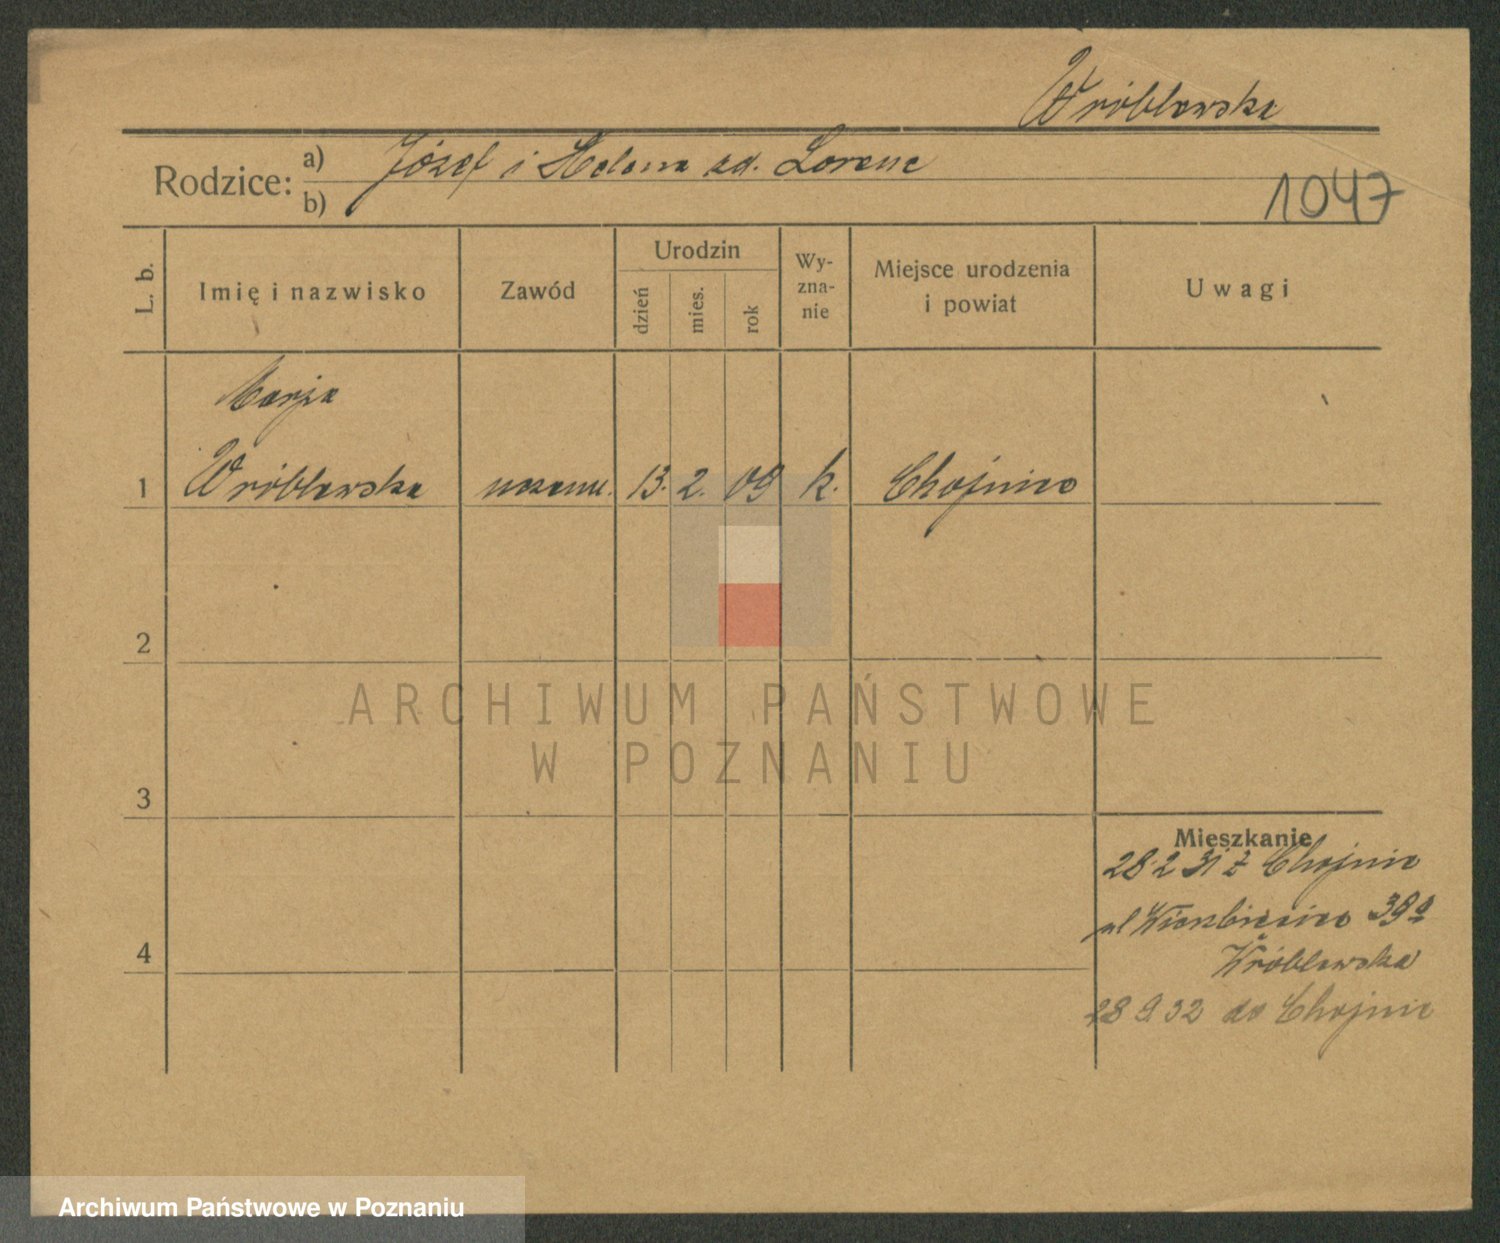 Wróblewska
Rodzice: a) Józef i Helena zd. Lorenc
b)
1047
L. b.
Imię i nazwisko
Zawód
Urodzin
dzień
mies.
rok
Wy-
zna-
nie
Miejsce urodzenia
i powiat
Uwagi
Marja
1 Wróblewska uczenn. 13. 2. 09 k. Chojnice
2
3
4
ARCHIWUM PAŃSTWOWE
W POZNANIU
Mieszkanie
28.2 31 z Chojnic
ul Wierzbięcice 39a
Wróblewska
28 9 32 do Chojnic
Archiwum Państwowe w Poznaniu